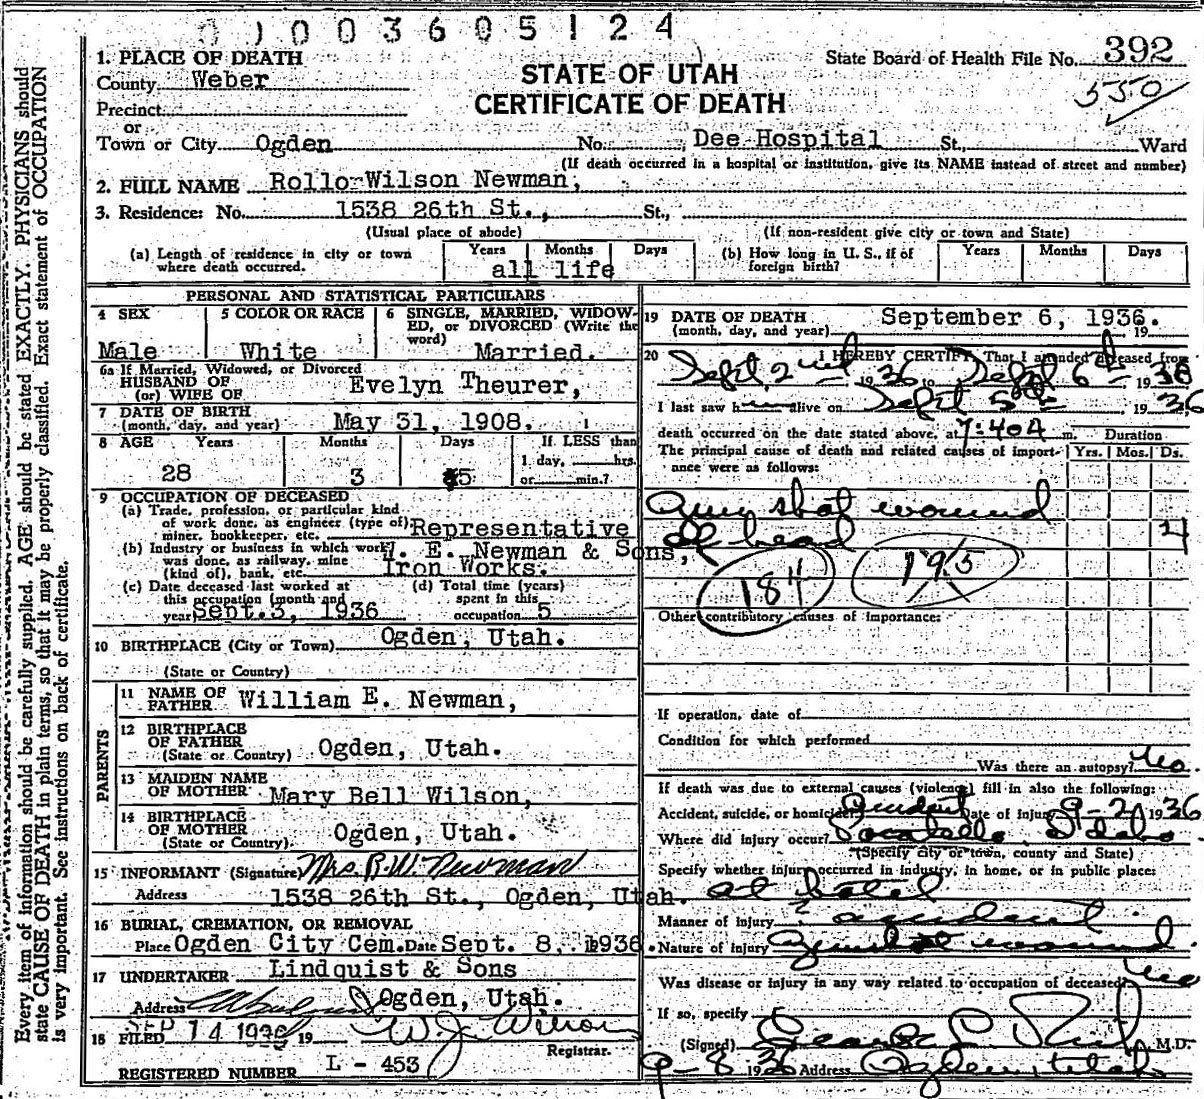 01003605124
1. PLACE OF DEATH
County Weber
Precinct
or
Town or City Ogden No. Dee Hospital St., Ward
STATE OF UTAH
CERTIFICATE OF DEATH
State Board of Health File No. 392
550
(If death occurred in a hospital or institution, give its NAME instead of street and number)
2. FULL NAME Rollo Wilson Newman,
3. Residence: No. 1538 26th St., St.,
(Usual place of abode) (If non-resident give city or town and State)
(a) Length of residence in city or town where death occurred. Years Months Days
all life
(b) How long in U. S., if of foreign birth? Years Months Days
PERSONAL AND STATISTICAL PARTICULARS
4 SEX
Male
5 COLOR OR RACE
White
6 SINGLE, MARRIED, WIDOWED, or DIVORCED (Write the word)
Married.
6a If Married, Widowed, or Divorced
HUSBAND OF
(or) WIFE OF Evelyn Theurer,
7 DATE OF BIRTH
(month, day, and year) May 31, 1908.
8 AGE Years Months Days If LESS than
1 day, hrs.
28 3 5 or min.?
9 OCCUPATION OF DECEASED
(a) Trade, profession, or particular kind
of work done, as engineer (type of)
miner, bookkeeper, etc. Representative
(b) Industry or business in which work
was done, as railway, mine
(kind of), bank, etc. J. E. Newman & Sons,
Iron Works.
(c) Date deceased last worked at
this occupation (month and
year) Sept. 3, 1936
(d) Total time (years)
spent in this
occupation 5
10 BIRTHPLACE (City or Town) Ogden, Utah.
(State or Country)
PARENTS
11 NAME OF
FATHER William E. Newman,
12 BIRTHPLACE
OF FATHER
(State or Country) Ogden, Utah.
13 MAIDEN NAME
OF MOTHER Mary Bell Wilson,
14 BIRTHPLACE
OF MOTHER
(State or Country) Ogden, Utah.
15 INFORMANT (Signature) Mrs. R. W. Newman
Address 1538 26th St., Ogden, Utah.
16 BURIAL, CREMATION, OR REMOVAL
Place Ogden City Cem. Date Sept. 8, 1936.
17 UNDERTAKER Lindquist & Sons
Address Ogden, Utah.
18 FILED SEP 14 1936 19 W. J. Wilson
Registrar.
REGISTERED NUMBER L - 453
19 DATE OF DEATH
(month, day, and year) September 6, 1936. 19
20 I HEREBY CERTIFY, That I attended deceased from
Sept 2nd 1936 to Sept 6th, 1936
I last saw him alive on Sept 5th, 1936
death occurred on the date stated above, at 7:40 A m. Duration
The principal cause of death and related causes of importance were as follows: Yrs. Mos. Ds.
Gun shot wound
of head 4
184 195
Other contributory causes of importance:
If operation, date of
Condition for which performed
Was there an autopsy? No.
If death was due to external causes (violence) fill in also the following:
Accident, suicide, or homicide? Accident Date of injury 9-2 1936
Where did injury occur? Pocatello, Idaho
(Specify city or town, county and State)
Specify whether injury occurred in industry, in home, or in public place:
at hotel
Manner of injury ? accident
Nature of injury Gunshot wound.
Was disease or injury in any way related to occupation of deceased? No
If so, specify
(Signed) M.D.
9-8 1936 Address Ogden, Utah
Every item of information should be carefully supplied. AGE should be stated EXACTLY. PHYSICIANS should
state CAUSE OF DEATH in plain terms, so that it may be properly classified. Exact statement of OCCUPATION
is very important. See instructions on back of certificate.